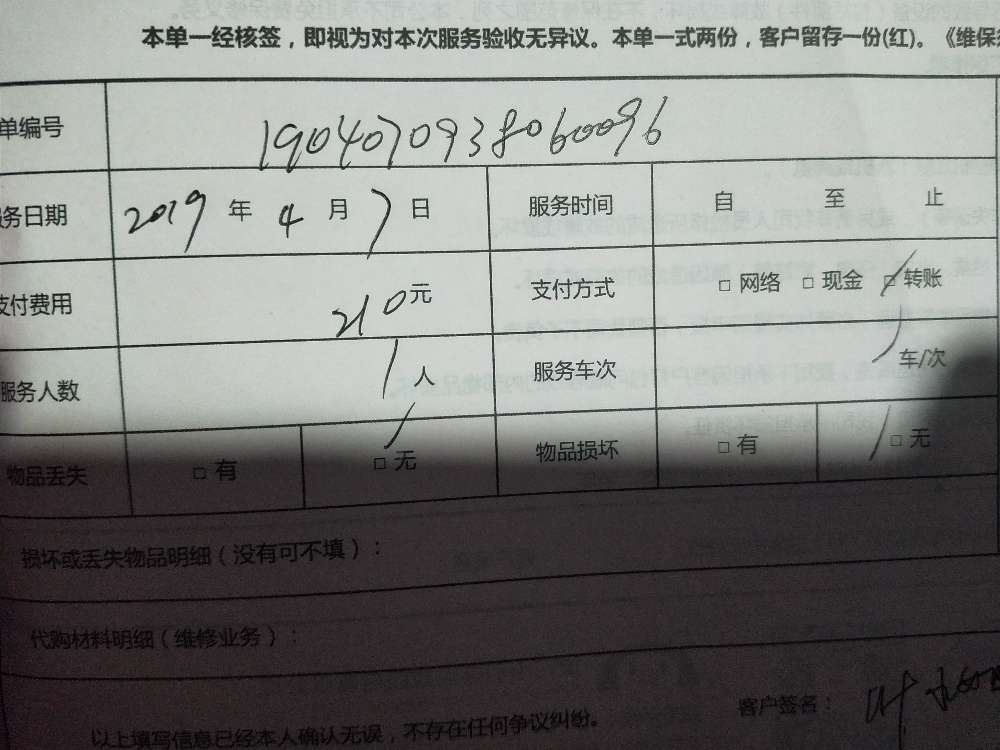 本单一经核签，即视为对本次服务验收无异议。本单一式两份，客户留存一份(红)。《维保
单编号 1904070938060096
务日期 2019 年 4 月 7 日 服务时间 自 至 止
支付费用 210元 支付方式 □ 网络 □ 现金 □ 转账
服务人数 1 人 服务车次 1 车/次
物品丢失 □ 有 □ 无 物品损坏 □ 有 □ 无
损坏或丢失物品明细（没有可不填）：
代购材料明细（维修业务）：
客户签名：
以上填写信息已经本人确认无误，不存在任何争议纠纷。